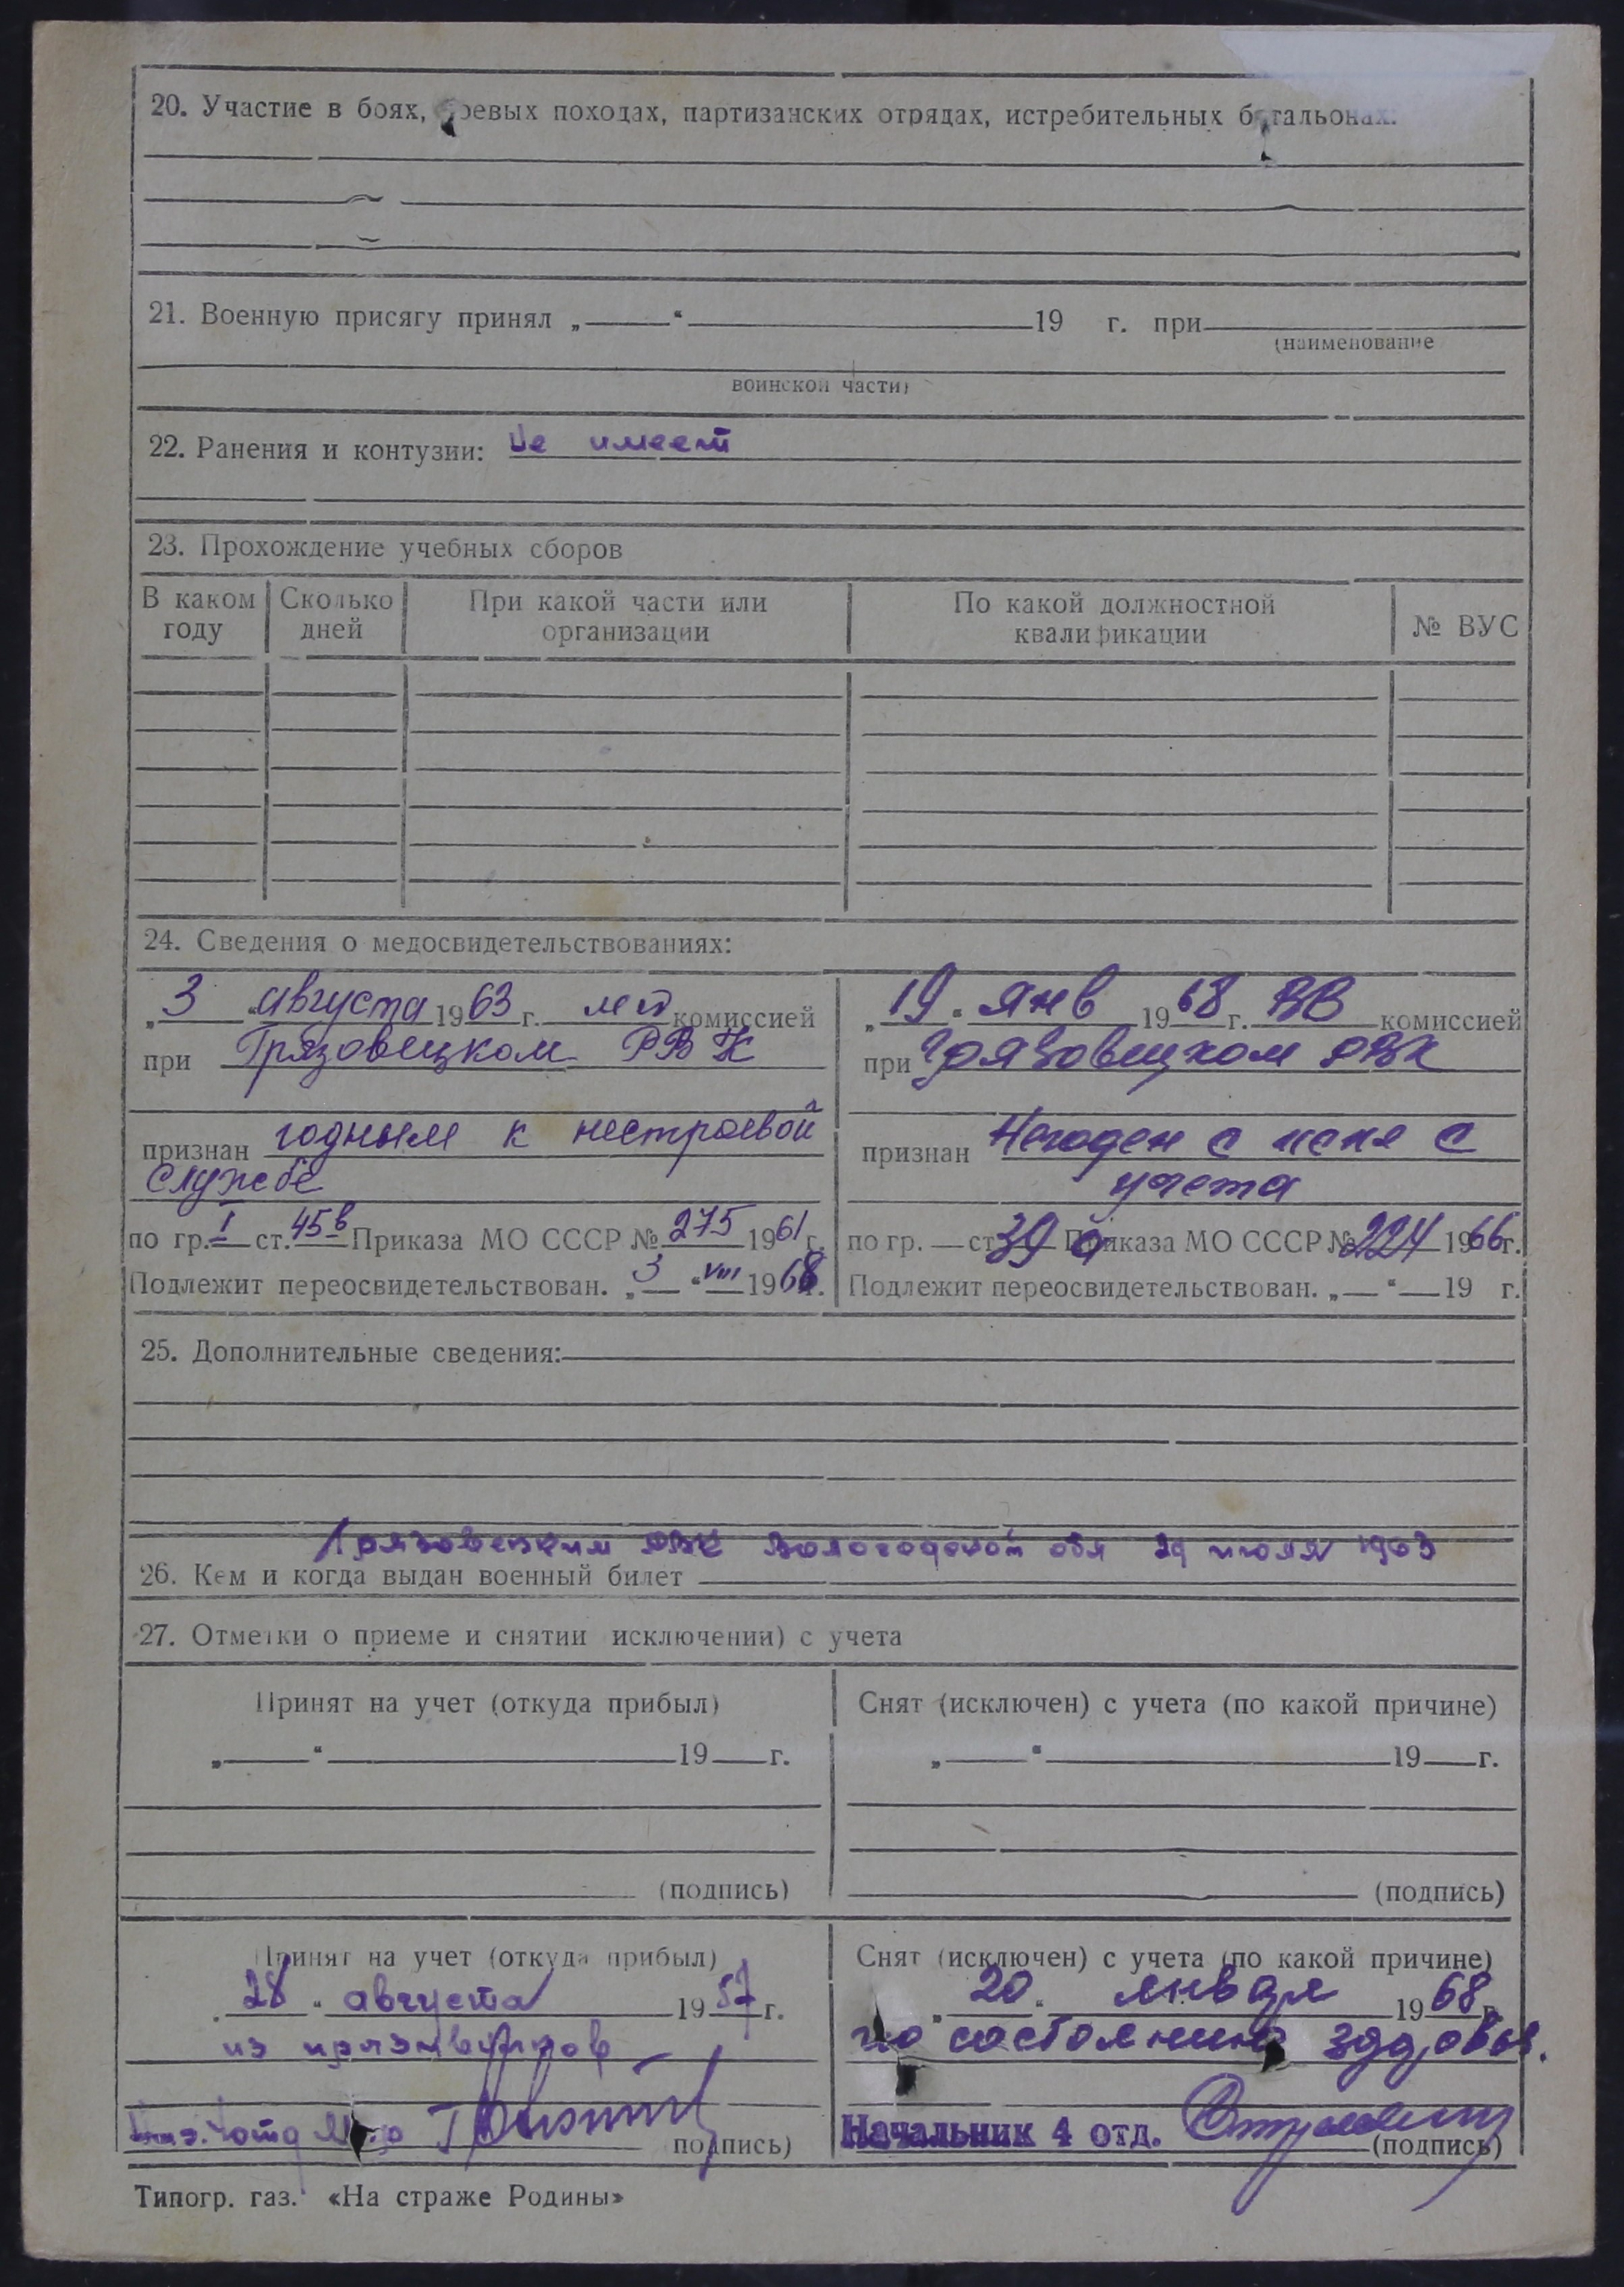 20. Участие в боях, боевых походах, партизанских отрядах, истребительных батальонах:
21. Военную присягу принял „ “ 19 г. при
(наименование
воинской части)
22. Ранения и контузии: Не имеет
23. Прохождение учебных сборов
В каком году Сколько дней При какой части или организации По какой должностной квалификации № ВУС
24. Сведения о медосвидетельствованиях:
„3“ августа 1963 г. комиссией
при Грязовецком РВК
признан годным к нестроевой
службе
по гр. I ст. 45в Приказа МО СССР № 275 1961 г.
Подлежит переосвидетельствован. „3“ VIII 1968 г.
„19“ янв 1968 г. ВВ комиссией
при Грязовецком РВК
признан Негоден с искл с
учета
по гр. — ст. 39 Приказа МО СССР № 224 1966 г.
Подлежит переосвидетельствован. „ “ 19 г.
25. Дополнительные сведения:
Грязовецким РВК Вологодской обл 29 июля 1963
26. Кем и когда выдан военный билет
27. Отметки о приеме и снятии исключении) с учета
Принят на учет (откуда прибыл)
„ “ 19 г.
(подпись)
Снят (исключен) с учета (по какой причине)
„ “ 19 г.
(подпись)
Принят на учет (откуда прибыл)
28 “ августа 1957 г.
из призывников
подпись)
Снят (исключен) с учета (по какой причине)
„20“ января 1968 г.
по состоянию здоровья.
Начальник 4 отд.
(подпись)
Типогр. газ. «На страже Родины»